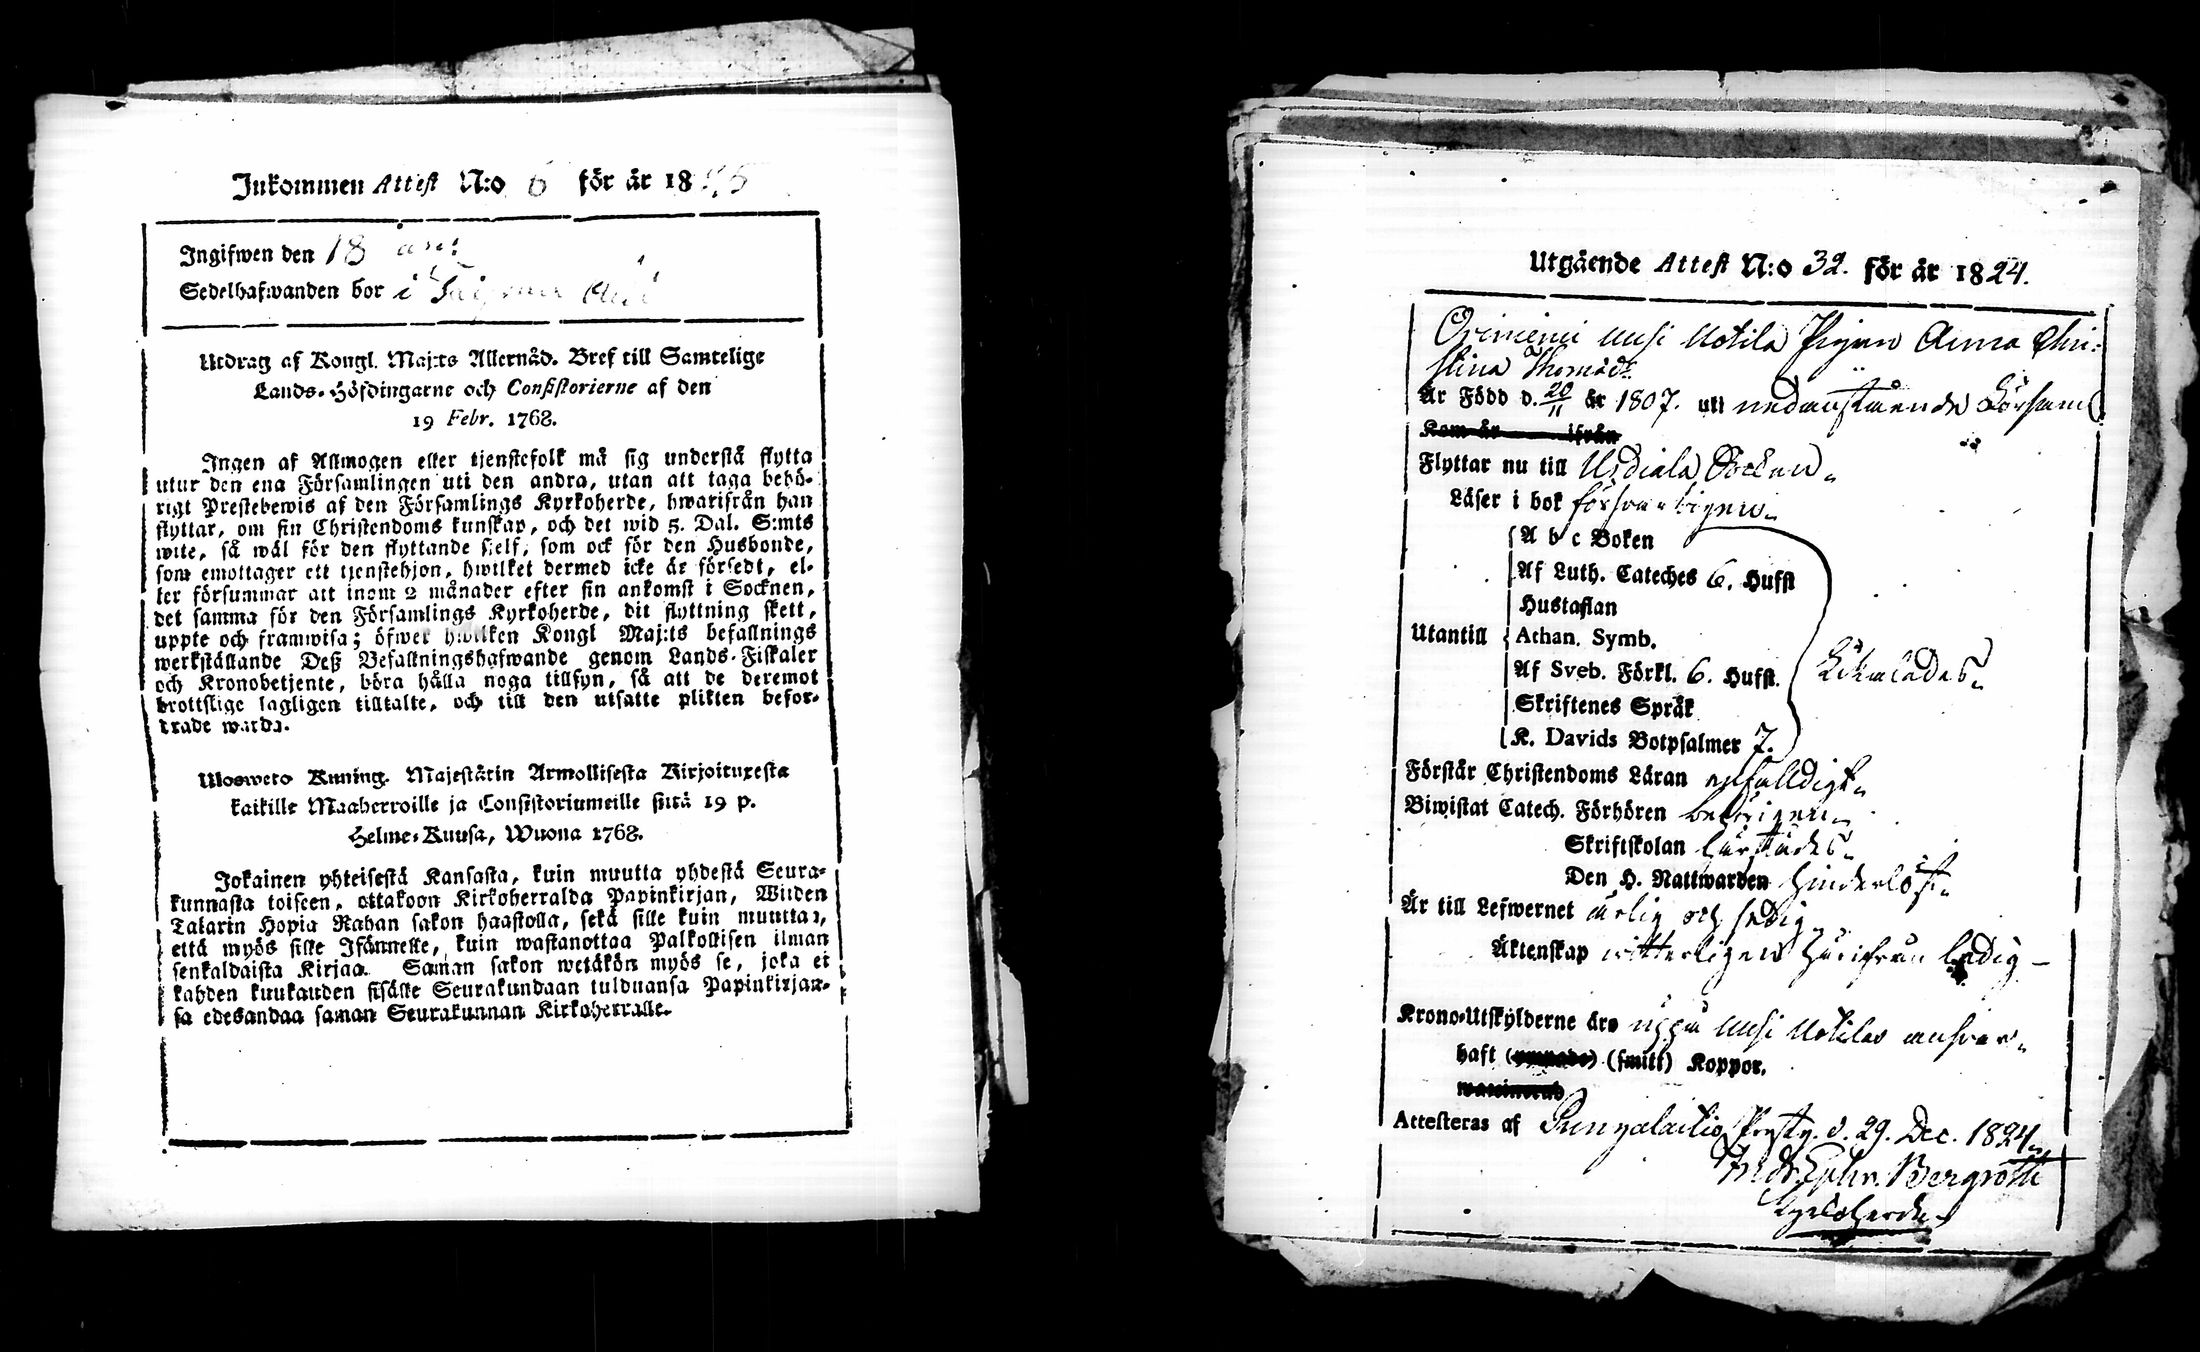 Inkommen Attest N:o 6 för år 18 5
Ingifwen den 18
Sedelhafwanden bor i
Utdrag af Kongl. Maj:ts Allernåd. Bref till Samtelige
Lands-Höfdingarne och Consistorierne af den
19 Febr. 1768.
Ingen af Allmogen eller tjenstefolk må sig understå flytta
utur den ena Församlingen uti den andra, utan att taga behö-
rigt Prestebewis af den Församlings Kyrkoherde, hwarifrån han
flyttar, om sin Christendoms kunskap, och det wid 5. Dal. S:mts
wite, så wäl för den flyttande sjelf, som ock för den Husbonde,
som emottager ett tjenstehjon, hwilket dermed icke är försedt, el-
ler försummar att inom 2 månader efter sin ankomst i Socknen,
det samma för den Församlings Kyrkoherde, dit flyttning skett,
uppte och framwisa; öfwer hwilken Kongl Maj:ts befallnings
werkställande Deß Befallningshafwande genom Lands-Fiskaler
och Kronobetjente, böra hålla noga tillsyn, så att de deremot
brottslige lagligen tilltalte, och till den utsatte plikten befor-
drade warda.
Ulosweto Kuning. Majestätin Armollisesta Kirjoituxesta
kaikille Maaherroille ja Consistoriumeille siitä 19 p.
Helme-Kuusa, Wuona 1768.
Jokainen yhteisestä Kansasta, kuin muutta yhdestä Seura-
kunnasta toiseen, ottakoon Kirkoherralda Papinkirjan, Wiiden
Talarin Hopia Rahan sakon haastolla, sekä sille kuin muuttaa,
että myös sille Isännelle, kuin wastanottaa Palkollisen ilman
senkaldaista Kirjaa. Saman sakon wetäkön myös se, joka ei
kahden kuukauden sisälle Seurakundaan tulduansa Papinkirjan-
sa edesandaa saman Seurakunnan Kirkoherralle.
Utgående Attest N:o 32. för år 1824.
Orimemi Uusi Uotila Pigan Anna Chri-
stina Thomäds.
Är Född d. 20/11 år 1807. uti nedanstående Församl.
Kom år ifrån
Flyttar nu till Usdiala Socken
Läser i bok försvarligen
A b c Boken
Af Luth. Cateches 6. Hufst
Hustaflan
Utantill Athan. Symb.
Af Sveb. Förkl. 6. Hufst.
Skriftenes Språk
K. Davids Botpsalmer 7.
likaledes
Förstår Christendoms Läran enfalldigt
Biwistat Catech. Förhören behörigen
Skriftskolan härstädes
Den H. Nattwarden hinderlöst
Är till Lefwernet ärlig och sedig
Äktenskap witterligen härifrån ledig
Krono-Utskylderne äro uppå Uusi Uotilas ansvar
haft (ympade) (smitt) Koppor.
waccinerad
Attesteras af Pungalaitio Prestg. d. 29. Dec. 1824
Ephr. Bergroth
Kyrkoherde